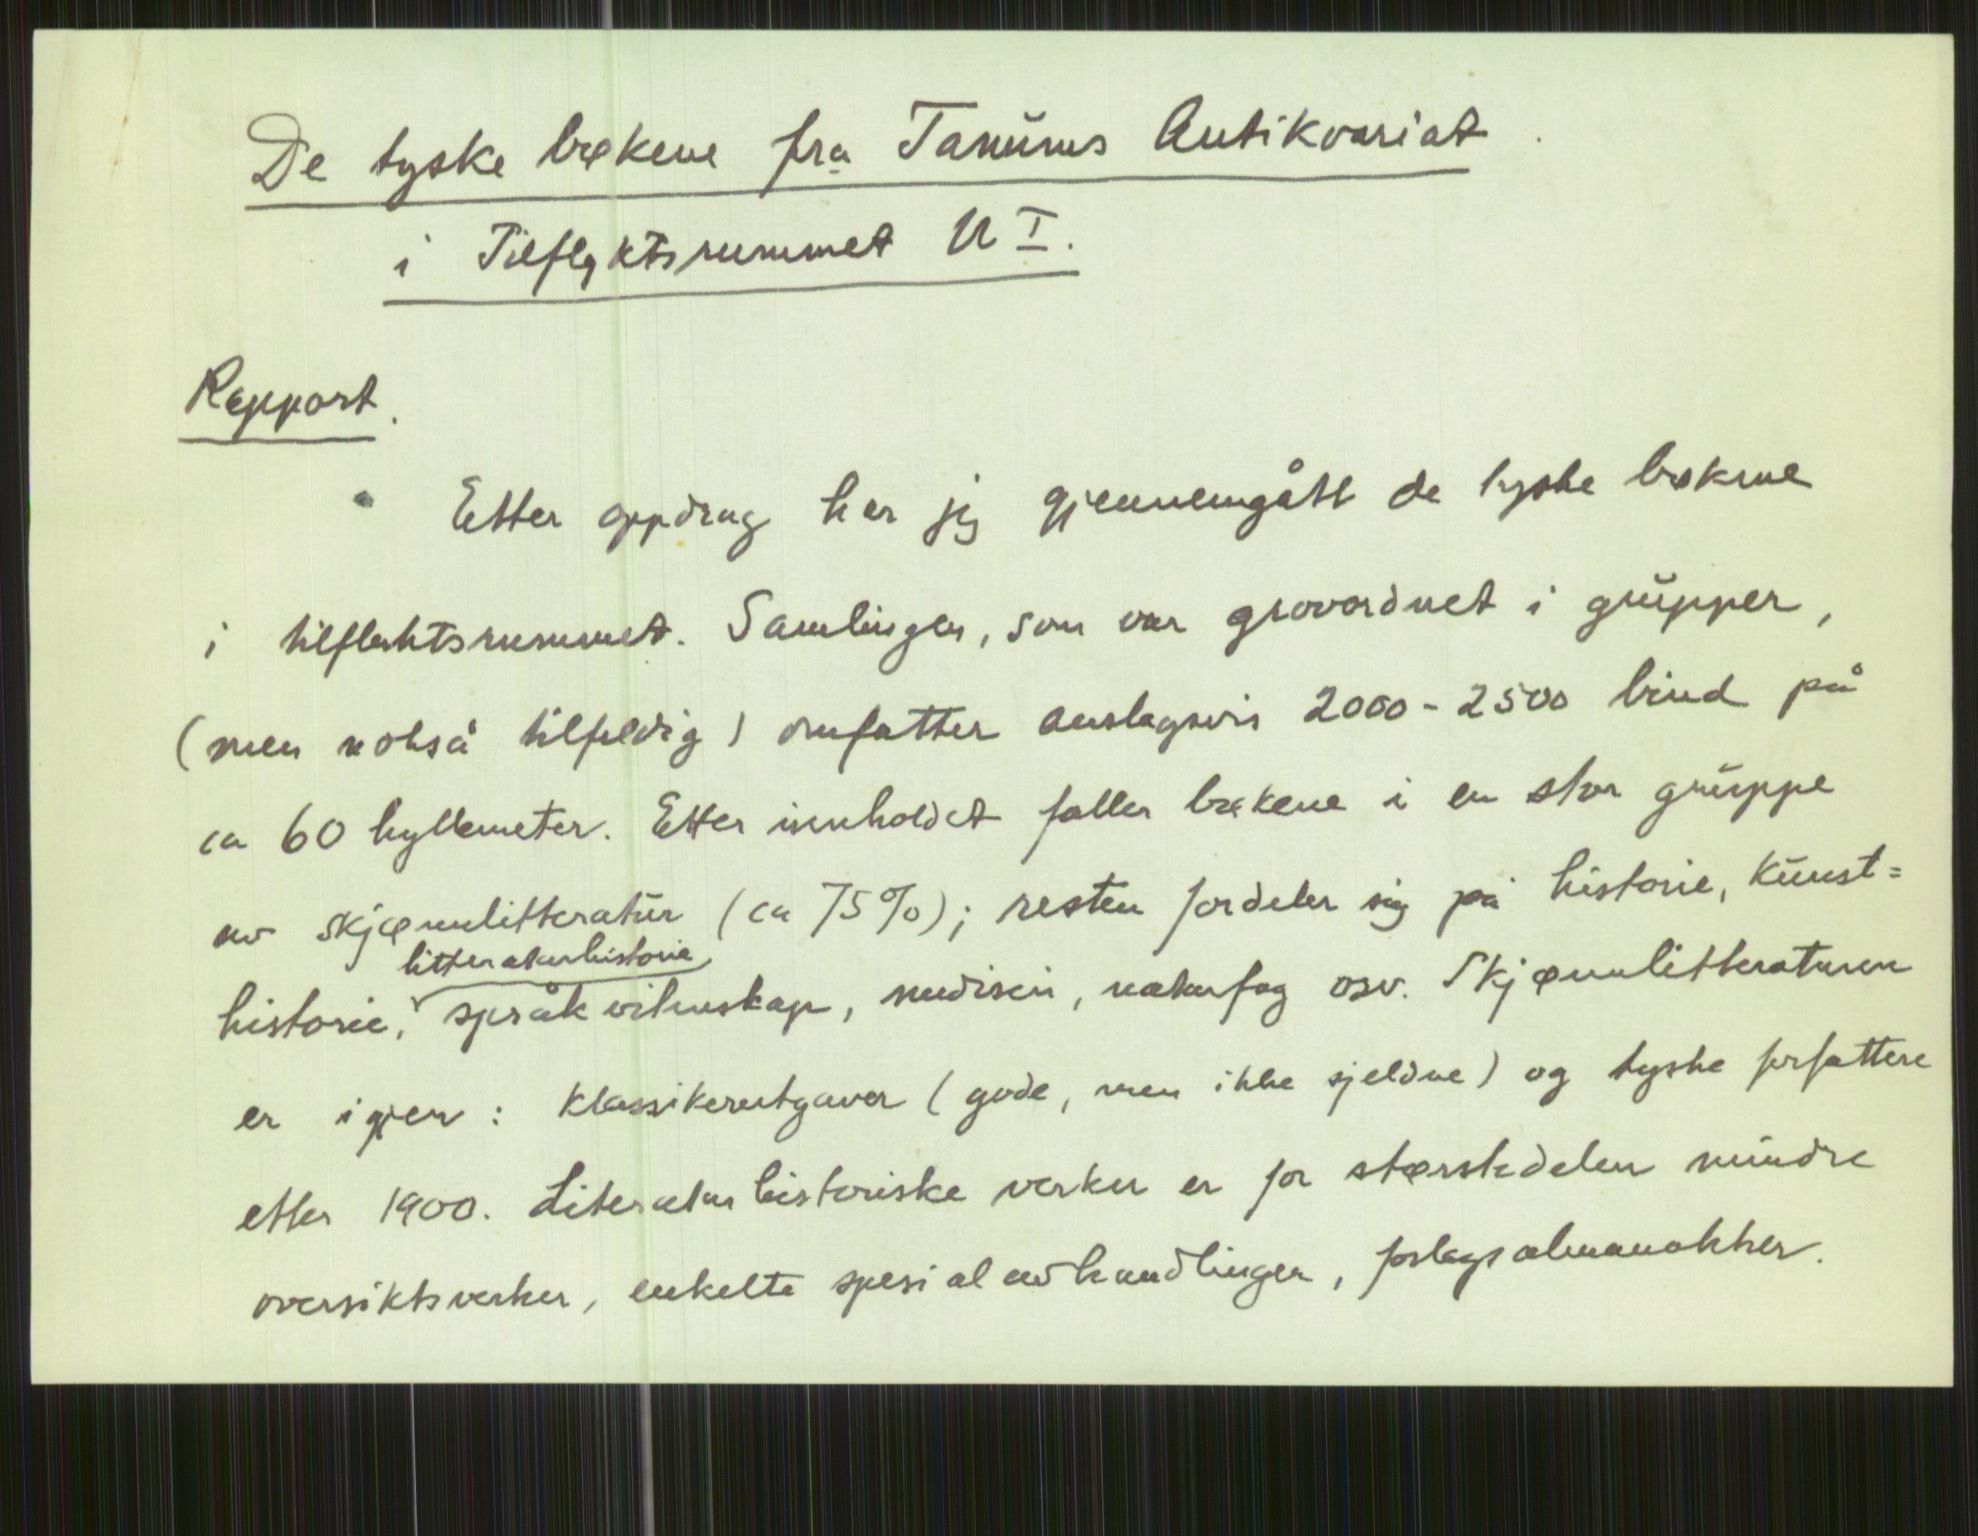 De tyske bøkene fra Tanums Antikvariat
i Tilflyktsrummet U I.
Rapport.
Etter oppdrag har jeg gjennemgått de tyske bøkene
i tilfluktsrummet. Samlingen, som var grovordnet i grupper,
(men nokså tilfeldig) omfatter anslagsvis 2000-2500 bind på
ca 60 hyllemeter. Etter innholdet faller bøkene i en stor gruppe
av skjønnlitteratur (ca 75%); resten fordeler sig på historie, kunst=
litteraturhistorie
historie, språkvitenskap, medisin, naturfag osv. Skjønnlitteraturen
er igjen: klassikerutgaver (gode, men ikke sjeldne) og tyske forfattere
etter 1900. Literaturhistoriske verker er for størstedelen mindre
oversiktsverker, enkelte spesialavhandlinger, forlagsalmanakker.